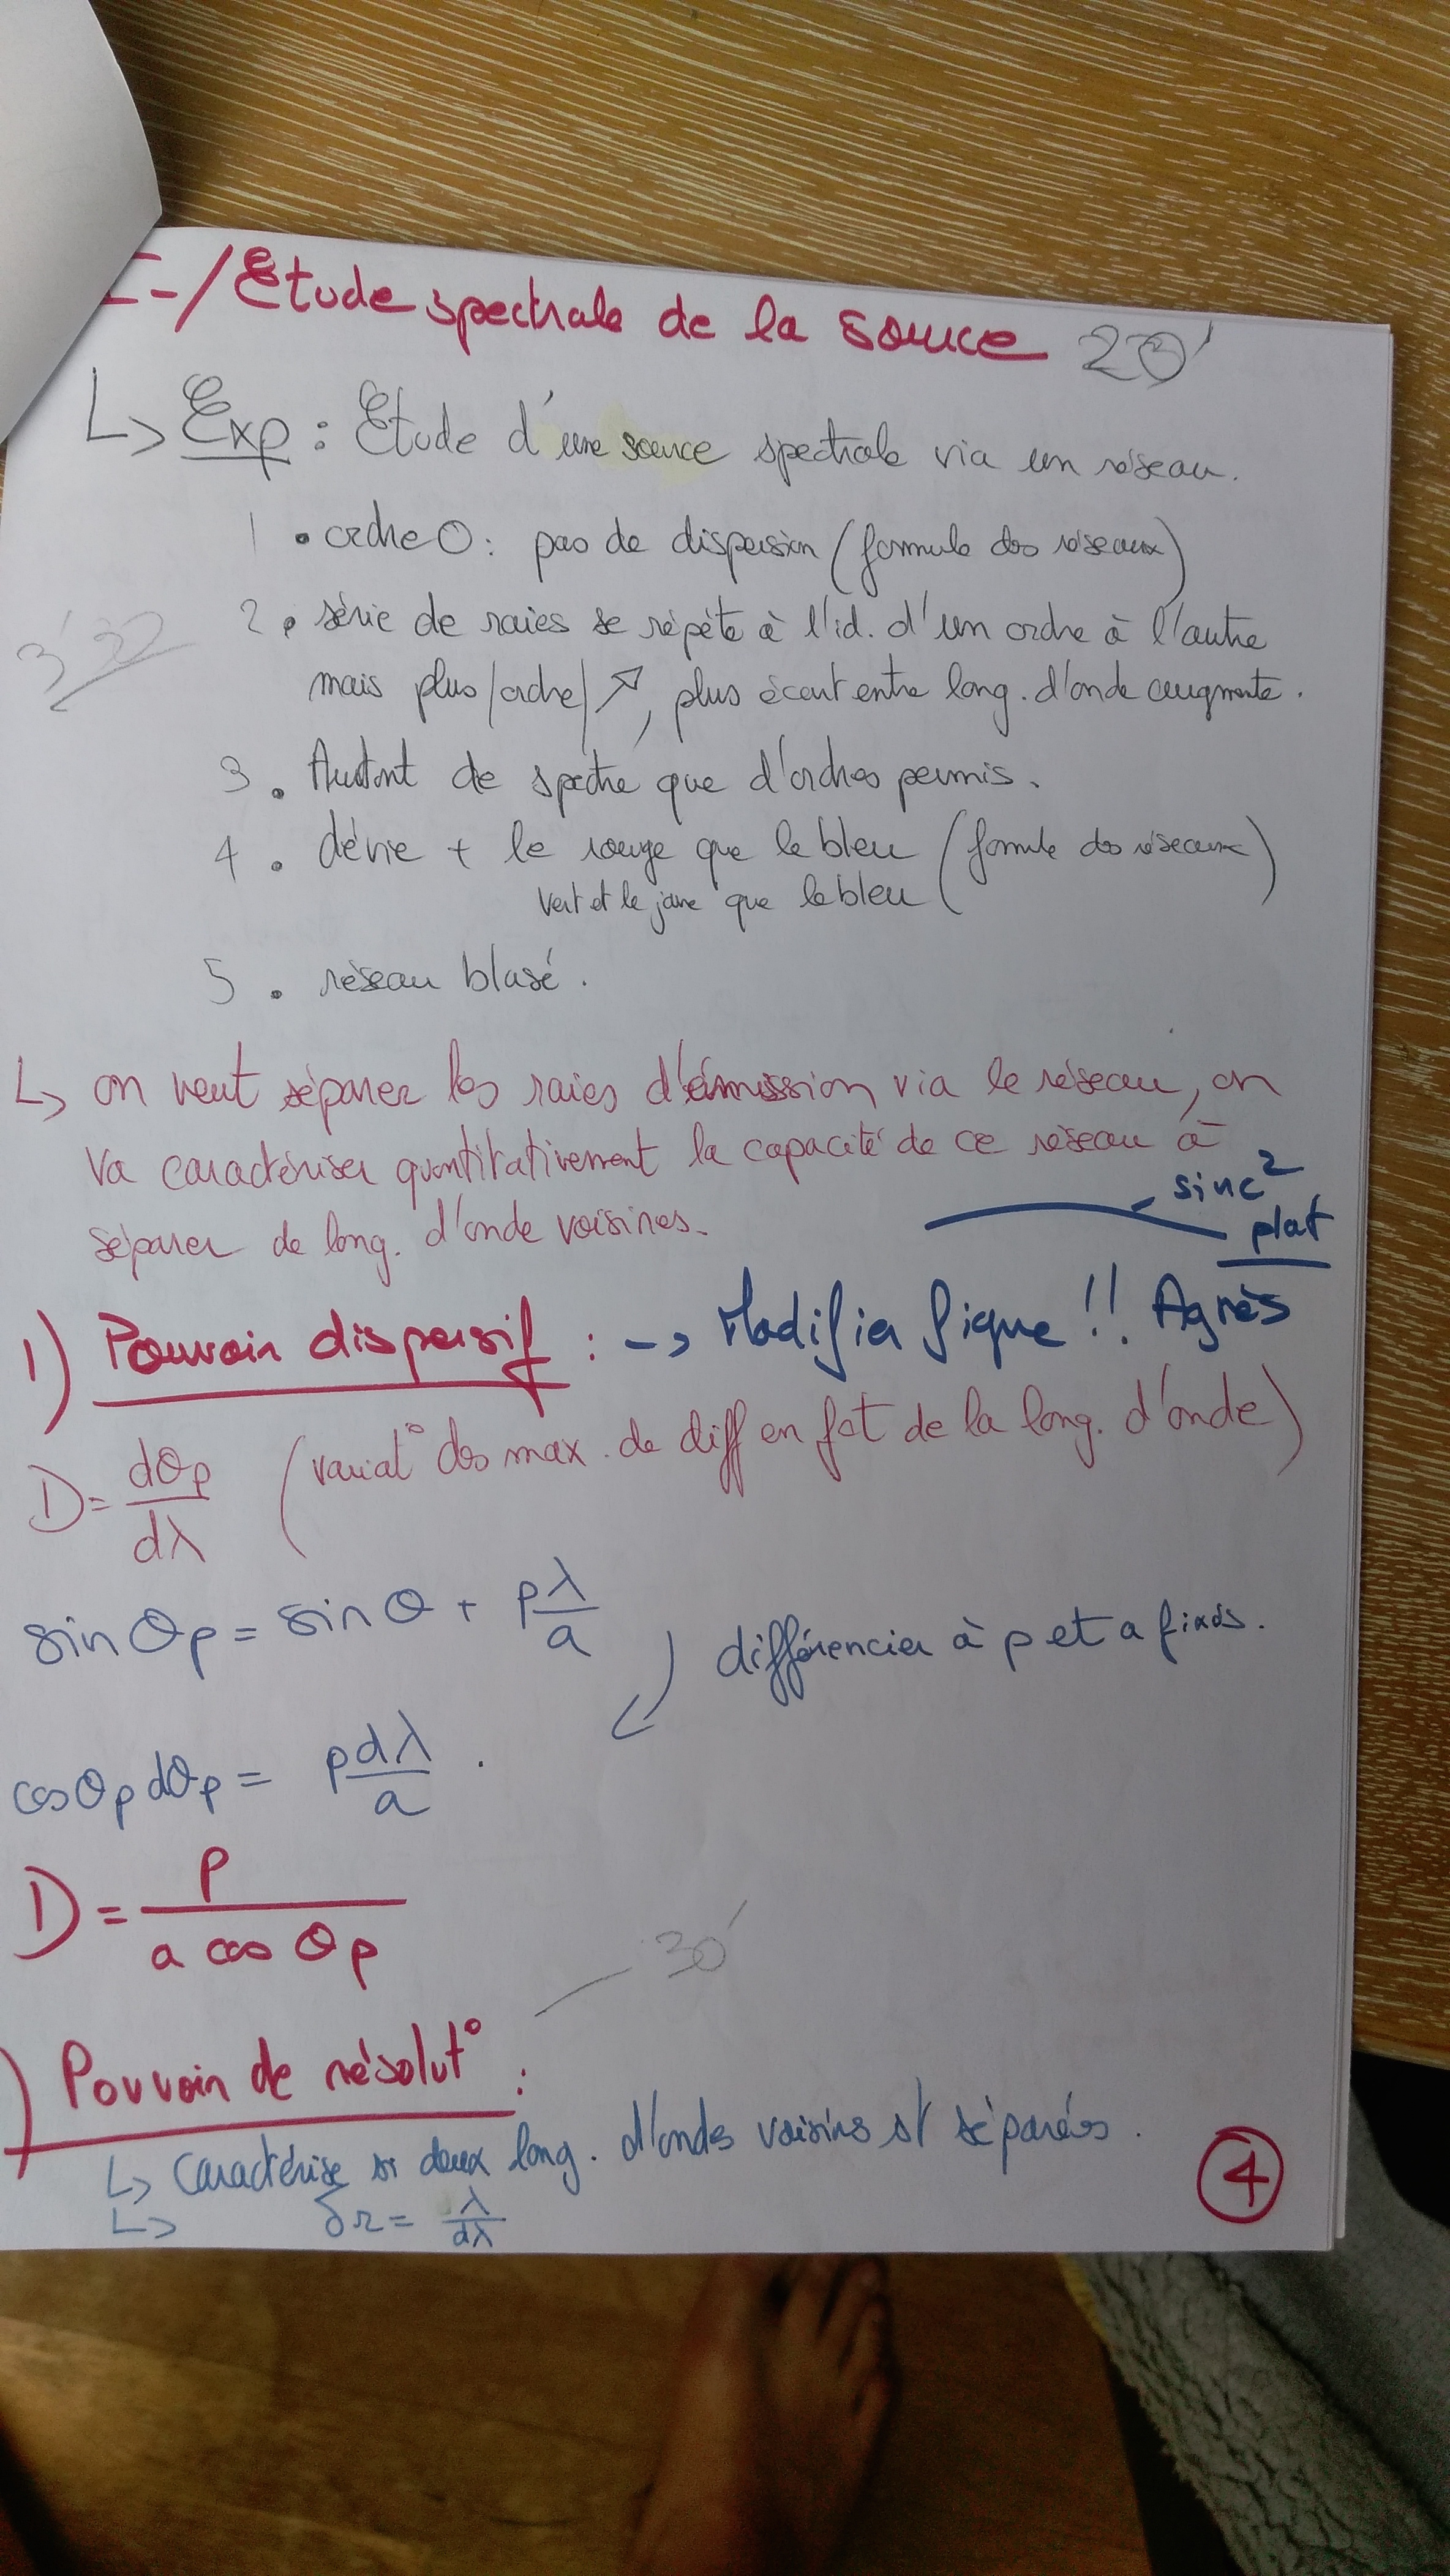 I-/ Etude spectrale de la source 20'
↳ Exp : Etude d'une source spectrale via un réseau.
1 • ordre 0 : pas de dispersion (formule des réseaux)
2 • série de raies se répète à l'id. d'un ordre à l'autre
mais plus |ordre| ↗, plus écart entre long. d'onde augmente.
3'
3 • Autant de spectre que d'ordres permis.
4 • dévie + le rouge que le bleu (formule des réseaux)
vert et le jaune que le bleu
5 • réseau blasé.
↳ on veut séparer les raies d'émission via le réseau, on
va caractériser quantitativement la capacité de ce réseau à
séparer de long. d'onde voisines.
sinc²
plat
1) Pouvoir dispersif : -> Modifier fique !! Agnès
D = dθp/dλ (variat° des max. de diff en fct de la long. d'onde)
sin θp = sin θ + pλ/a
différencier à p et a fixés.
cos θp dθp = p dλ/a .
D = p/(a cos θp)
30'
) Pouvoir de résolut° :
↳ Caractérise si deux long. d'ondes voisins st séparées.
↳ δr = λ/dλ
4